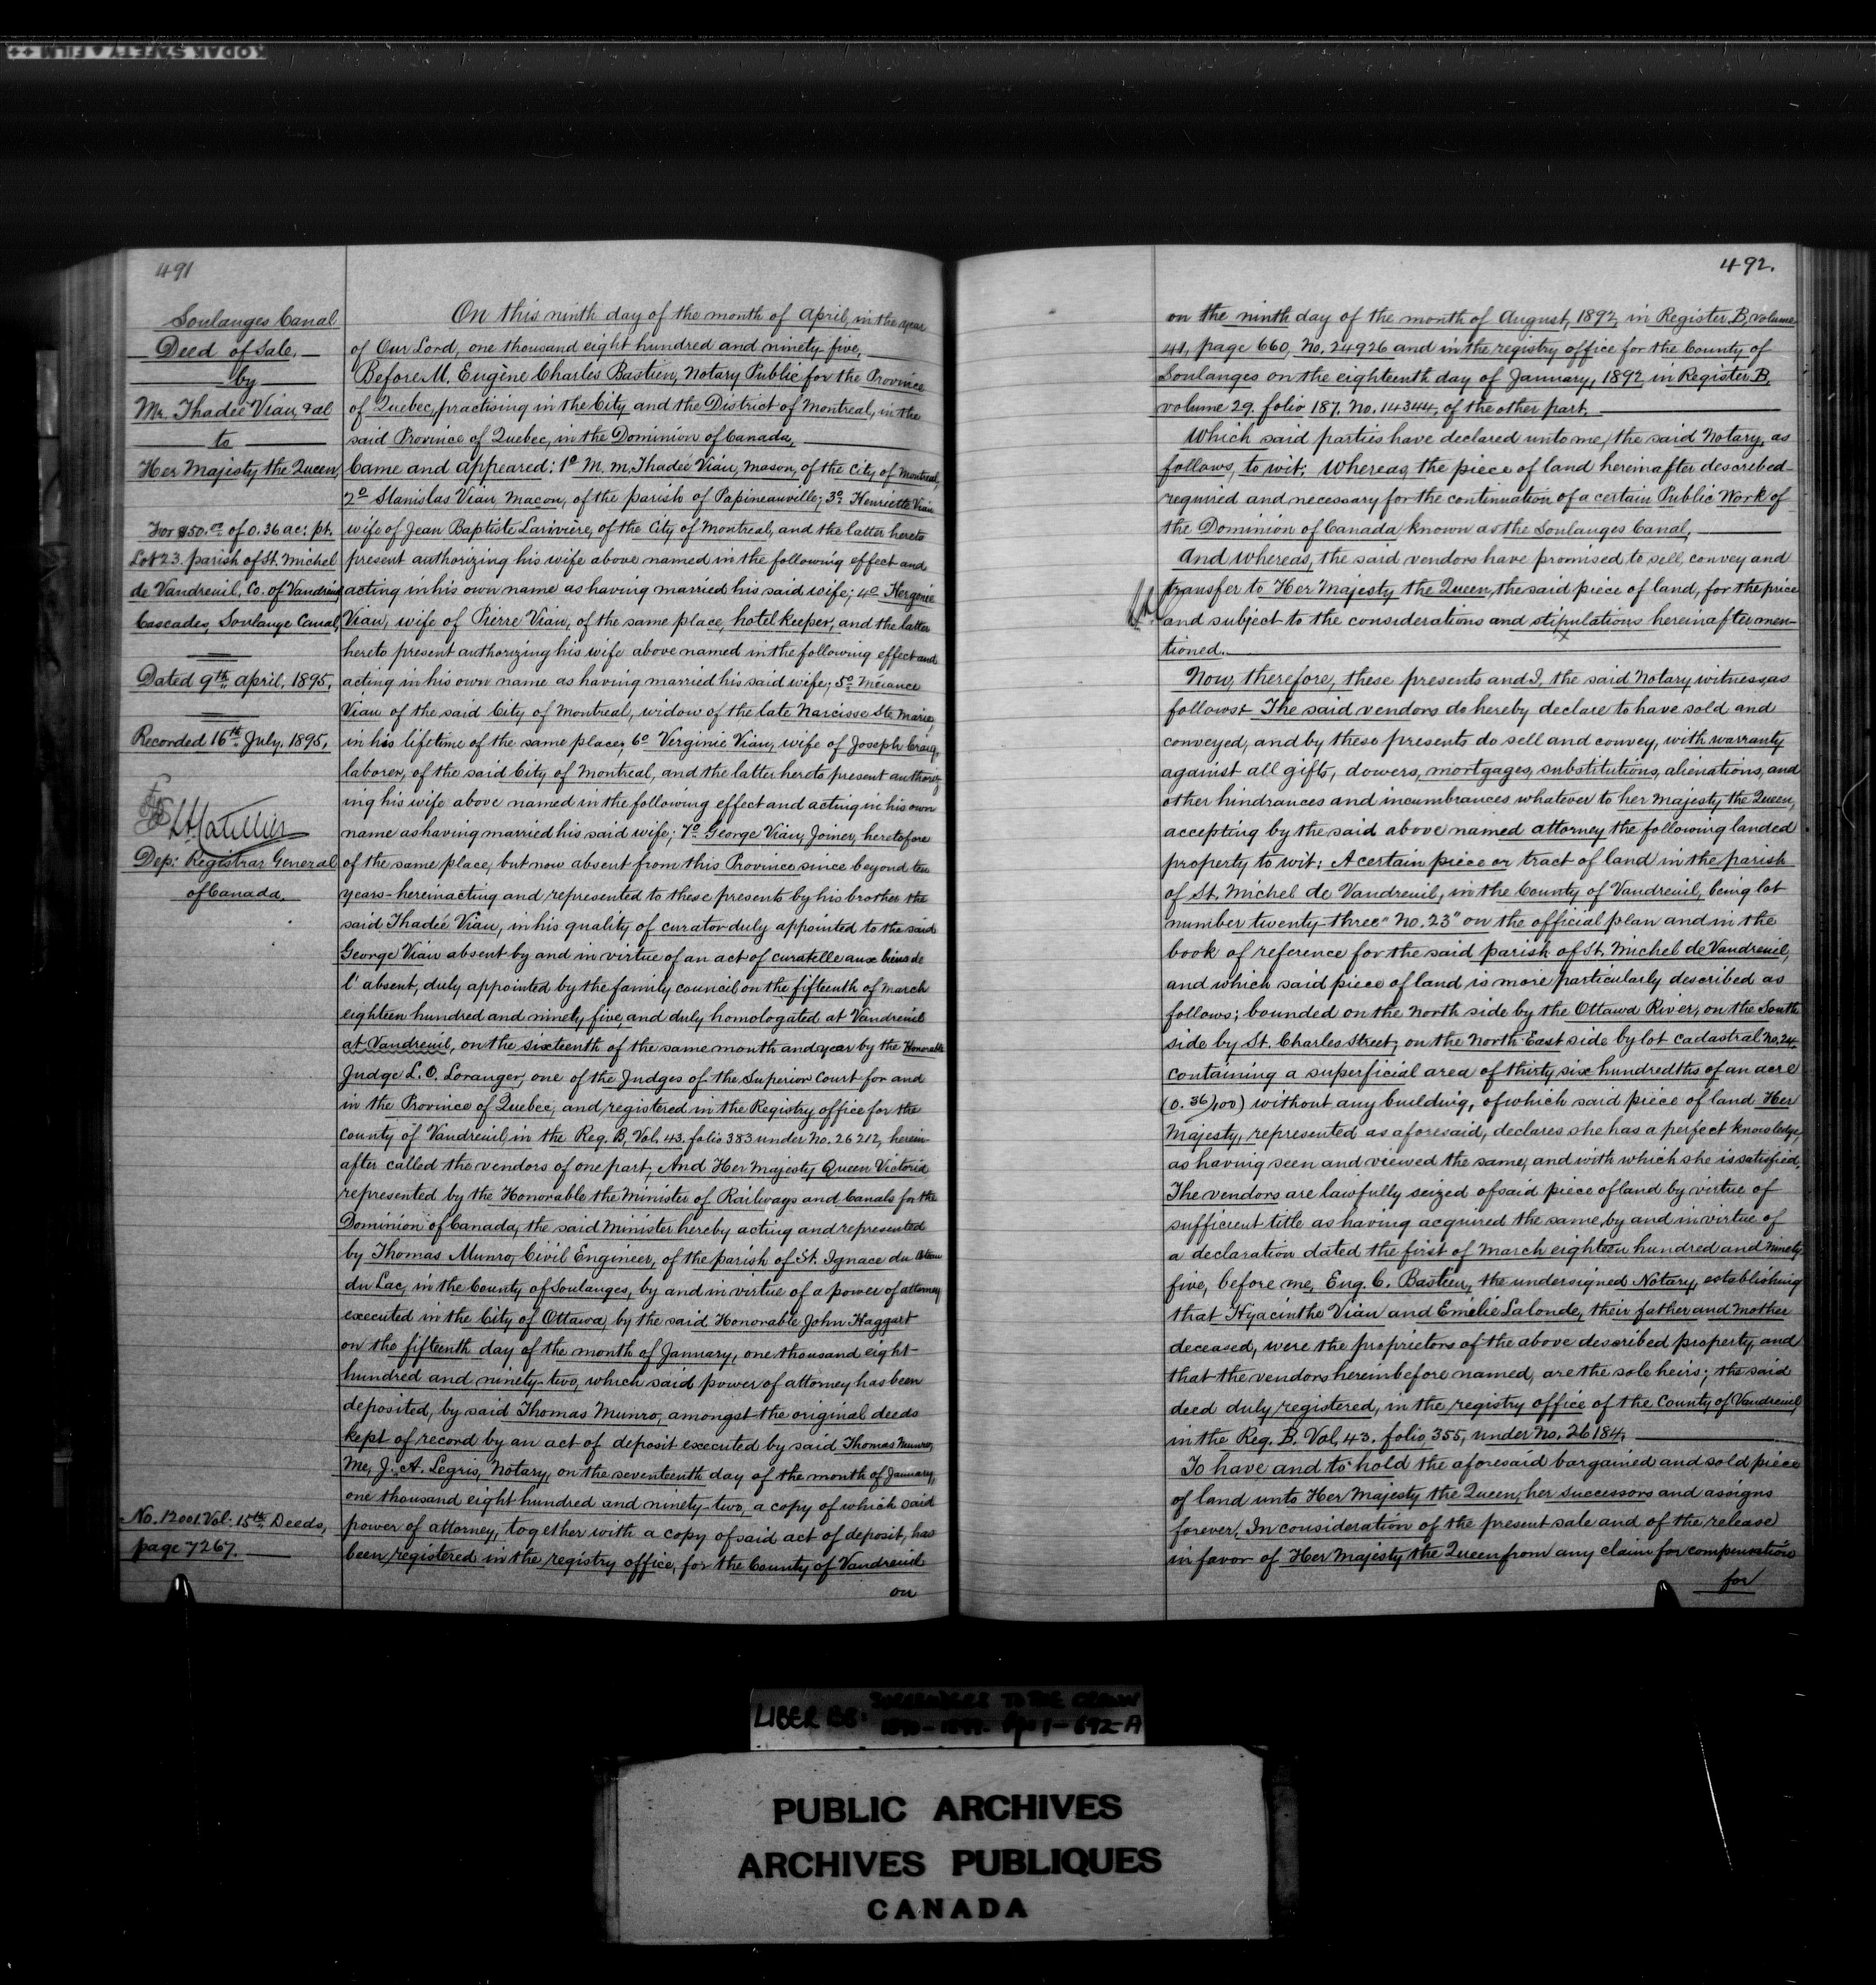 KODAK SAFETY FILM
491
Soulanges Canal
Deed of Sale,
by
Mr. Thadée Viau, & al
to
Her Majesty the Queen,
For $50.00 of 0.36 ac: pt.
Lot 23. parish of St. Michel
de Vaudreuil, Co. of Vaudreuil
Cascades, Soulange Canal,
Dated 9th April, 1895,
Recorded 16th July, 1895,
Dep: Registrar General
of Canada.
No. 12001. Vol: 15th Deeds,
page 7267.
On this ninth day of the month of April, in the year
of Our Lord, one thousand eight hundred and ninety-five,
Before M. Eugène Charles Bastien, Notary Public for the Province
of Quebec, practising in the City and the District of Montreal, in the
said Province of Quebec, in the Dominion of Canada,
Came and appeared: 1º M. M. Thadée Viau, Mason, of the City of Montreal,
2º Stanislas Viau, Macon, of the parish of Papineauville; 3º Henriette Viau
wife of Jean Baptiste Larivière, of the City of Montreal, and the latter hereto
present authorizing his wife above named in the following effect and
acting in his own name as having married his said wife; 4º Hergenie
Viau, wife of Pierre Viau, of the same place, hotel keeper, and the latter
hereto present authorizing his wife above named in the following effect and
acting in his own name as having married his said wife; 5º Mérance
Viau of the said City of Montreal, widow of the late Narcisse Ste Marie,
in his lifetime of the same place; 6º Verginie Viau, wife of Joseph Craig,
laborer, of the said City of Montreal, and the latter hereto present authoriz
ing his wife above named in the following effect and acting in his own
name as having married his said wife; 7º George Viau, Joiner, heretofore
of the same place, but now absent from this Province since beyond ten
years - herein acting and represented to these presents by his brother the
said Thadée Viau, in his quality of curator duly appointed to the said
George Viau absent by and in virtue of an act of curatelle aux biens de
l'absent, duly appointed by the family council on the fifteenth of March
eighteen hundred and ninety five, and duly homologated at Vaudreuil
at Vaudreuil, on the sixteenth of the same month and year by the Honorable
Judge L. O. Loranger, one of the Judges of the Superior Court for and
in the Province of Quebec, and registered in the Registry office for the
County of Vaudreuil, in the Reg. B, Vol. 43. folio 383 under No. 26212, herein-
after called the vendors of one part; And Her Majesty Queen Victoria
represented by the Honorable the Minister of Railways and Canals for the
Dominion of Canada, the said Minister hereby acting and represented
by Thomas Munro, Civil Engineer, of the parish of St. Ignace du Coteau
du Lac, in the County of Soulanges, by and in virtue of a power of attorney
executed in the City of Ottawa, by the said Honorable John Haggart
on the fifteenth day of the month of January, one thousand eight-
hundred and ninety-two, which said power of attorney has been
deposited, by said Thomas Munro, amongst the original deeds
kept of record by an act of deposit executed by said Thomas Munro,
Me, J. A. Legris, Notary, on the seventeenth day of the month of January,
one thousand eight hundred and ninety-two, a copy of which said
power of attorney, together with a copy of said act of deposit, has
been registered in the registry office, for the County of Vaudreuil
on
492.
on the ninth day of the month of August, 1892, in Register B, volume
41, page 660, No. 24926 and in the registry office for the County of
Soulanges on the eighteenth day of January, 1892 in Register B,
volume 29. folio 187. No. 14344, of the other part,
Which said parties have declared unto me, the said Notary, as
follows, to wit: Whereas, the piece of land hereinafter described
required and necessary for the continuation of a certain Public Work of
the Dominion of Canada, known as the Soulanges Canal,
And whereas, the said vendors have promised to sell, convey and
transfer to Her Majesty the Queen, the said piece of land, for the price
and subject to the considerations and stipulations hereinafter men-
tioned.
Now, therefore, these presents and I, the said Notary witness, as
follows:- The said vendors do hereby declare to have sold and
conveyed, and by these presents do sell and convey, with warranty
against all gifts, dowers, mortgages, substitutions, alienations, and
other hindrances and incumbrances whatever to her Majesty the Queen,
accepting by the said above named attorney the following landed
property to wit: A certain piece or tract of land in the parish
of St. Michel de Vaudreuil, in the County of Vaudreuil, being lot
number twenty-three "No. 23" on the official plan and in the
book of reference for the said parish of St. Michel de Vaudreuil,
and which said piece of land is more particularly described as
follows; bounded on the North side by the Ottawa River, on the South
side by St. Charles Street, on the North-East side by lot cadastral No. 24.
containing a superficial area of thirty six hundredths of an acre
(0.36/100) without any building, of which said piece of land Her
Majesty, represented as aforesaid, declares she has a perfect knowledge,
as having seen and viewed the same, and with which she is satisfied,
The vendors are lawfully seized of said piece of land by virtue of
sufficient title as having acquired the same, by and in virtue of
a declaration dated the first of March eighteen hundred and ninety
five, before me, Eug. C. Bastien, the undersigned Notary, establishing
that Hyacinthe Viau and Emélie Lalonde, their father and mother
deceased, were the proprietors of the above described property, and
that the vendors hereinbefore named, are the sole heirs; the said
deed duly registered, in the registry office of the County of Vaudreuil
in the Reg. B. Vol. 43. folio, 355, under No. 26184,
To have and to hold the aforesaid bargained and sold piece
of land unto Her Majesty the Queen, her successors and assigns
forever, In consideration of the present sale and of the release
in favor of Her Majesty the Queen from any claim for compensation
for
LIBER BB: SURRENDERS TO THE CROWN
1890-1899. Pps 1-692-A
PUBLIC ARCHIVES
ARCHIVES PUBLIQUES
CANADA